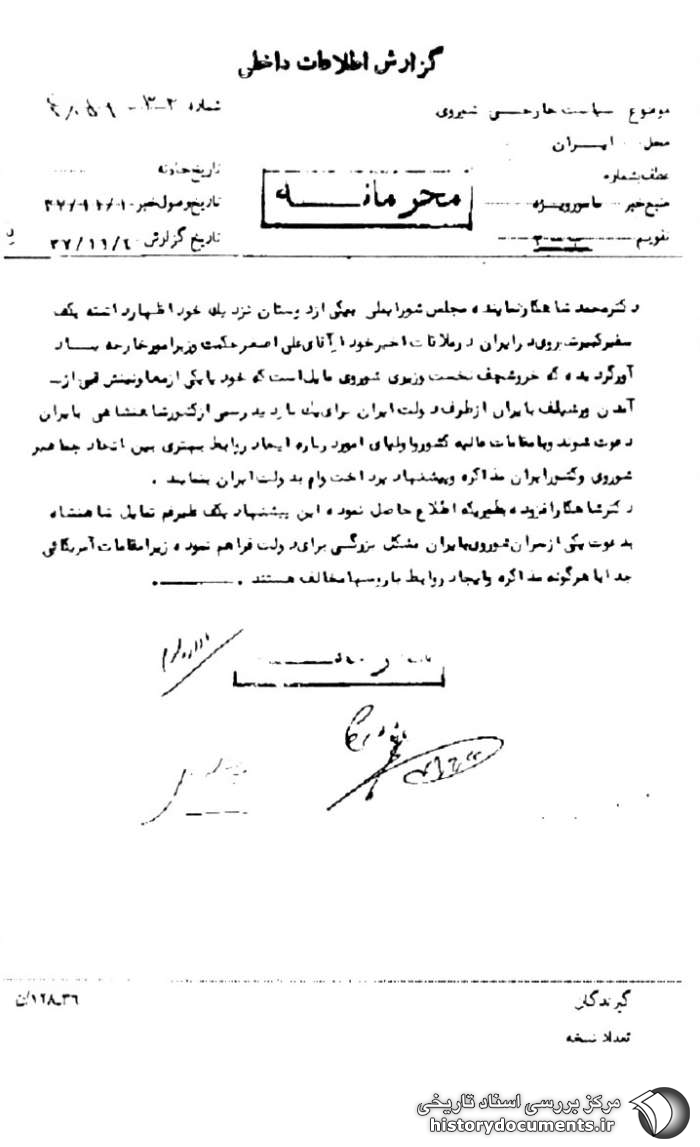 گزارش اطلاعات داخلی
موضوع سیاست خارجی شوروی
شماره
محل ایران
عطف بشماره
تاریخ حادثه
محرمانه
منبع خبر مامور ویژه
تاریخ وصول خبر
تقویم
تاریخ گزارش ۳۷/۱۱/۴
دکتر محمد شاهکار نماینده مجلس شورایملی بیکی از دوستان نزدیک خود اظهار داشته یک
سفیر کبیر شوروی در ایران در ملاقات اخیر خود با آقای علی اصغر حکمت وزیر امور خارجه بیاد
آور گردیده که خروشچف نخست وزیر شوروی مایل است که خود یا یکی از معاونینش از
آمدن ورشیلف بایران از طرف دولت ایران برای یک بازدید رسمی از کشور شاهنشاهی بایران
دعوت شوند و با مقامات عالیه کشور و اولیای امور درباره ایجاد روابط بهتری بین اتحاد جماهیر
شوروی و کشور ایران مذاکره و پیشنهاد پرداخت وام بدولت ایران بنمایند .
دکتر شاهکار افزوده بطوریکه اطلاع حاصل نموده این پیشنهاد یک طرفه تمایل شاهنشاه
بدعوت یکی از سران شوروی بایران مشکل بزرگی برای دولت فراهم نموده زیرا مقامات آمریکائی
جدا با هرگونه مذاکره و ایجاد روابط با روسها مخالف هستند .
گیرندگان
۱۲۸-۳۶/ن
تعداد نسخه
مرکز بررسی اسناد تاریخی
historydocuments.ir